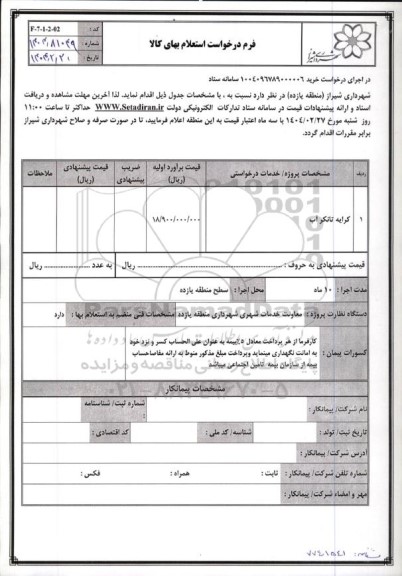 فرم درخواست استعلام بهای کالا
کد : F-7-1-2-02
شماره :
تاریخ :
در اجرای درخواست خرید ۱۰۰۴۰۹۶۷۸۹۰۰۰۰۰۶ سامانه ستاد
شهرداری شیراز (منطقه یازده) در نظر دارد نسبت به ، با مشخصات جدول ذیل اقدام نماید. لذا آخرین مهلت مشاهده و دریافت
اسناد و ارائه پیشنهادات قیمت در سامانه ستاد تدارکات الکترونیکی دولت WWW.Setadiran.ir حداکثر تا ساعت ۱۱:۰۰
روز شنبه مورخ ۱۴۰۴/۰۲/۲۷ با سه ماه اعتبار قیمت به این منطقه اعلام فرمایید، تا در صورت صرفه و صلاح شهرداری شیراز
برابر مقررات اقدام گردد.
ردیف مشخصات پروژه/ خدمات درخواستی قیمت برآورد اولیه (ریال) ضریب پیشنهادی قیمت پیشنهادی (ریال) ملاحظات
۱ کرایه تانکر آب ۱۸/۹۰۰/۰۰۰/۰۰۰
قیمت پیشنهادی به حروف : ریال به عدد ریال
مدت اجرا : ۱۰ ماه محل اجرا : سطح منطقه یازده
دستگاه نظارت پروژه : معاونت خدمات شهری شهرداری منطقه یازده مشخصات فنی منضم به استعلام بها : دارد
کسورات پیمان : کارفرما از هر پرداخت معادل ۵٪ بیمه به عنوان علی الحساب کسر و نزد خود
به امانت نگهداری مینماید وپرداخت مبلغ مذکور منوط به ارائه مفاصاحساب
بیمه از سازمان بیمه تامین اجتماعی میباشد
مشخصات پیمانکار
نام شرکت/ پیمانکار: شماره ثبت/ شناسنامه :
تاریخ ثبت/ تولد : شناسه/ کد ملی : کد اقتصادی :
آدرس شرکت/ پیمانکار :
شماره تلفن شرکت/ پیمانکار: ثابت : همراه : فکس :
مهر و امضاء شرکت/ پیمانکار :